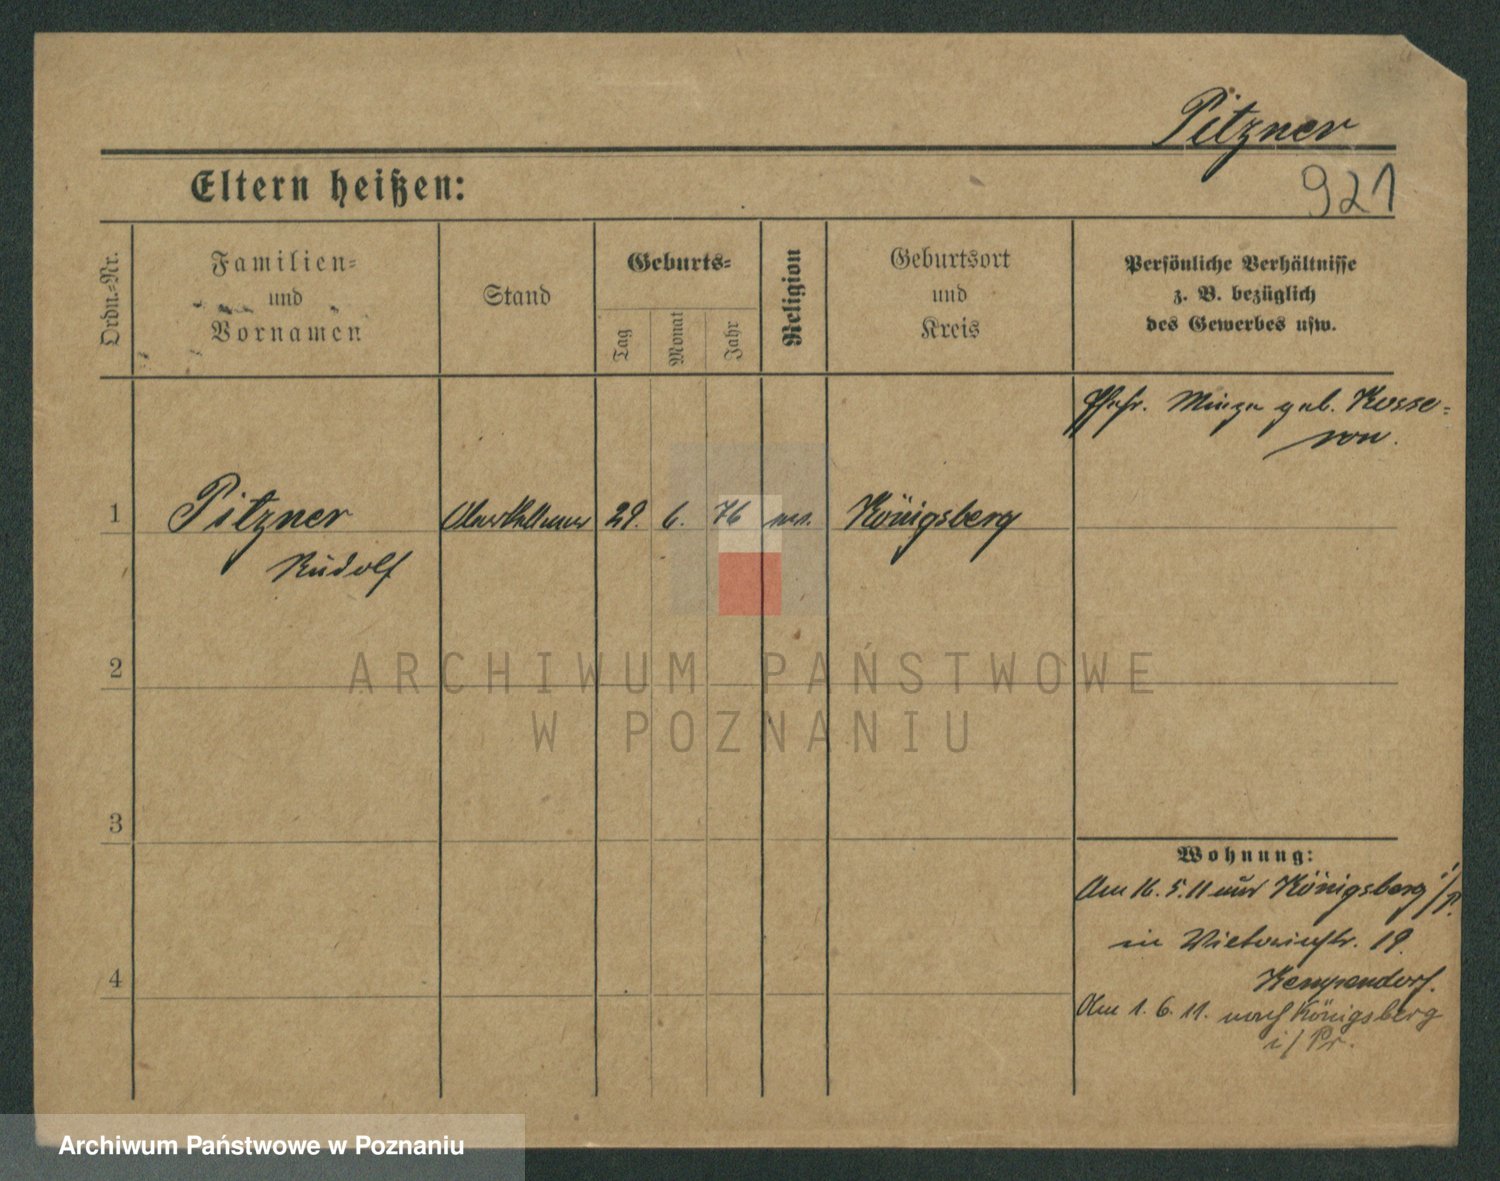 Pitzner
921
Eltern heißen:
Ordn.-Nr.
Familien-
und
Vornamen
Stand
Geburts-
Tag
Monat
Jahr
Religion
Geburtsort
und
Kreis
Persönliche Verhältnisse
z. B. bezüglich
des Gewerbes usw.
geb. Kosse-
1
Pitzner
Oberkellner
29.
6.
76
Königsberg
Rudolf
2
ARCHIWUM PAŃSTWOWE
W POZNANIU
3
Wohnung:
Am 16. 5. 11 aus Königsberg i/P.
in Victoriastr. 19.
4
Am 1. 6. 11. nach Königsberg
i/Pr.
Archiwum Państwowe w Poznaniu